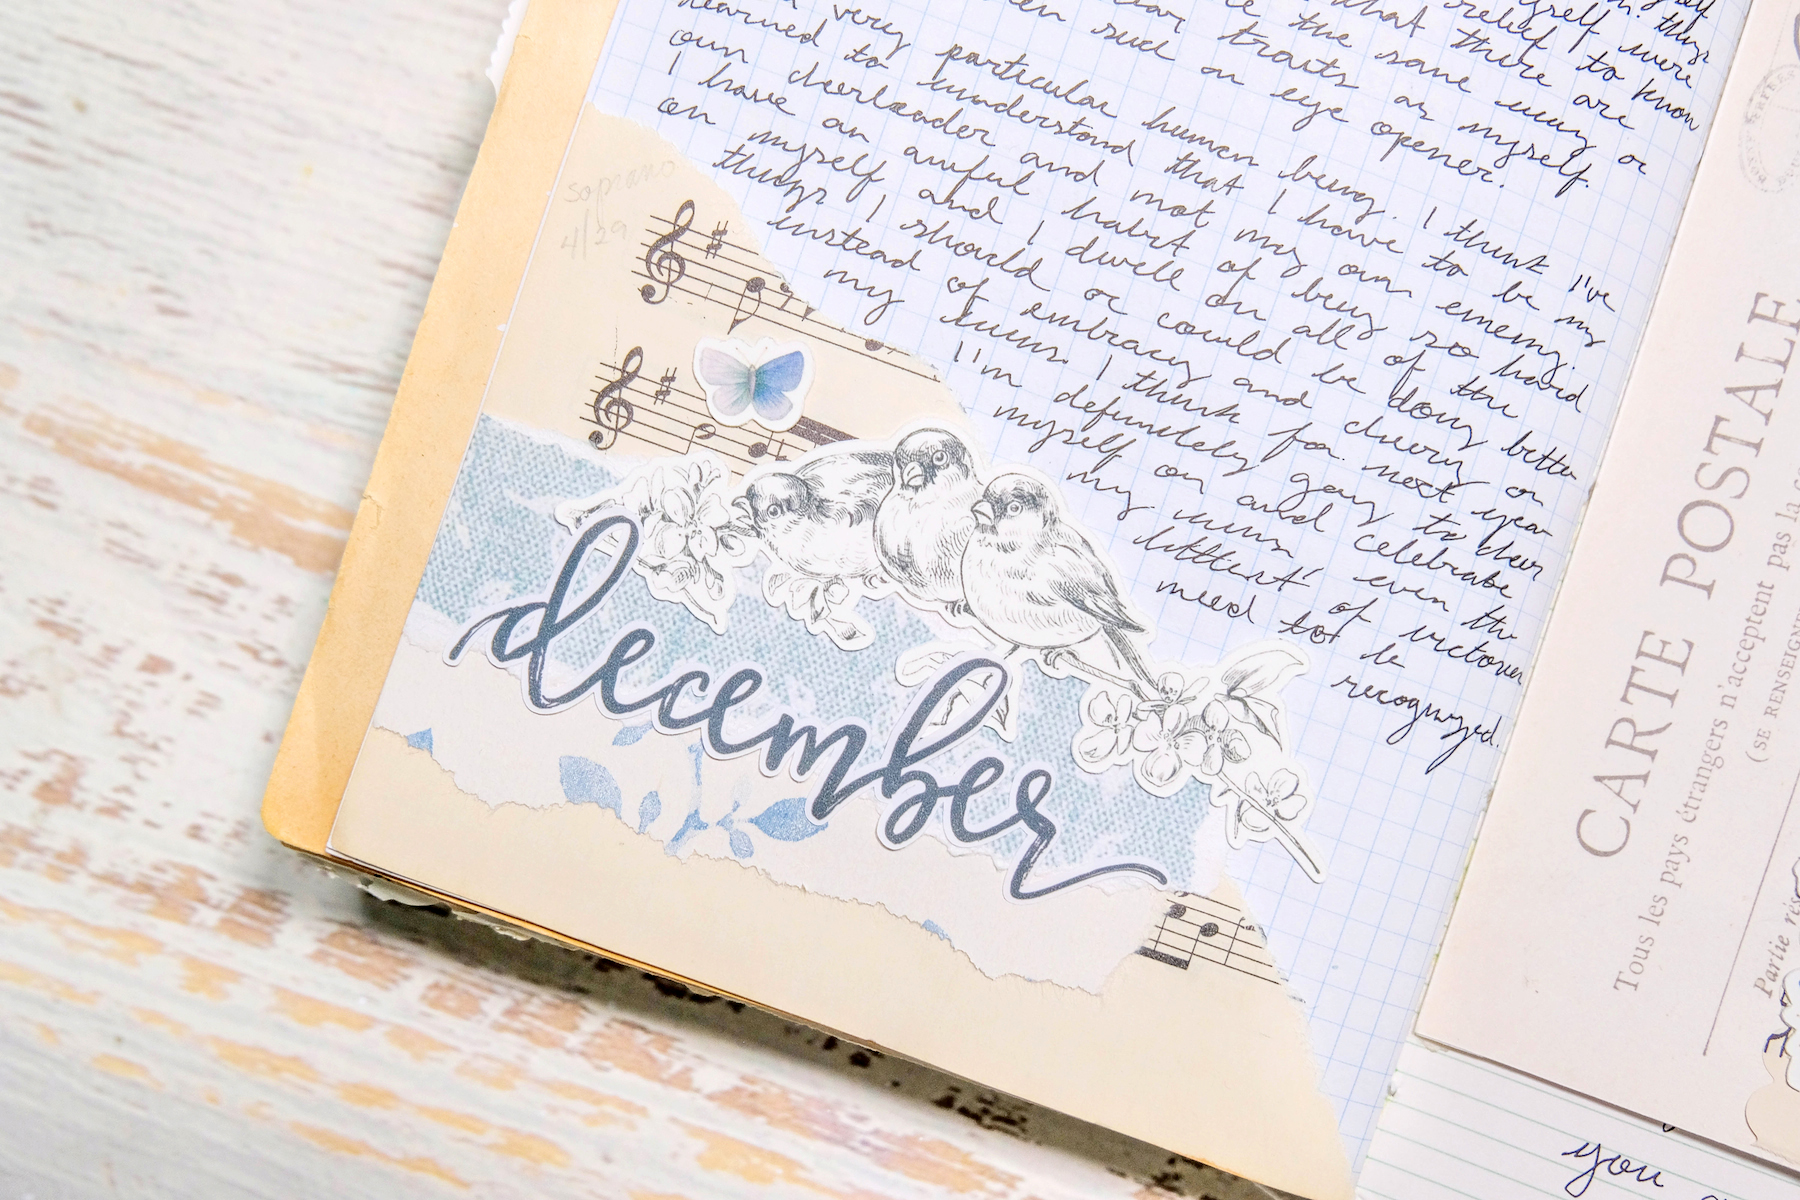 myself were
what relief to know
are the same way or
traits as myself.
such an eye opener.
very particular human being. I think I've
learned to understand that I have to be my
own cheerleader and not my own enemy.
I have an awful habit of being so hard
on myself and I dwell on all of the
things I should or could be doing better
instead of embracing and cheering on
my wins. I think for next year
I'm definitely going to cheer
myself on and celebrate
my wins, even the
littlest of victories
need to be
recognized.
soprano
4/29
december
CARTE POSTALE
Tous les pays étrangers n'acceptent pas la
(SE RENSEIGNE
Partie rés
you